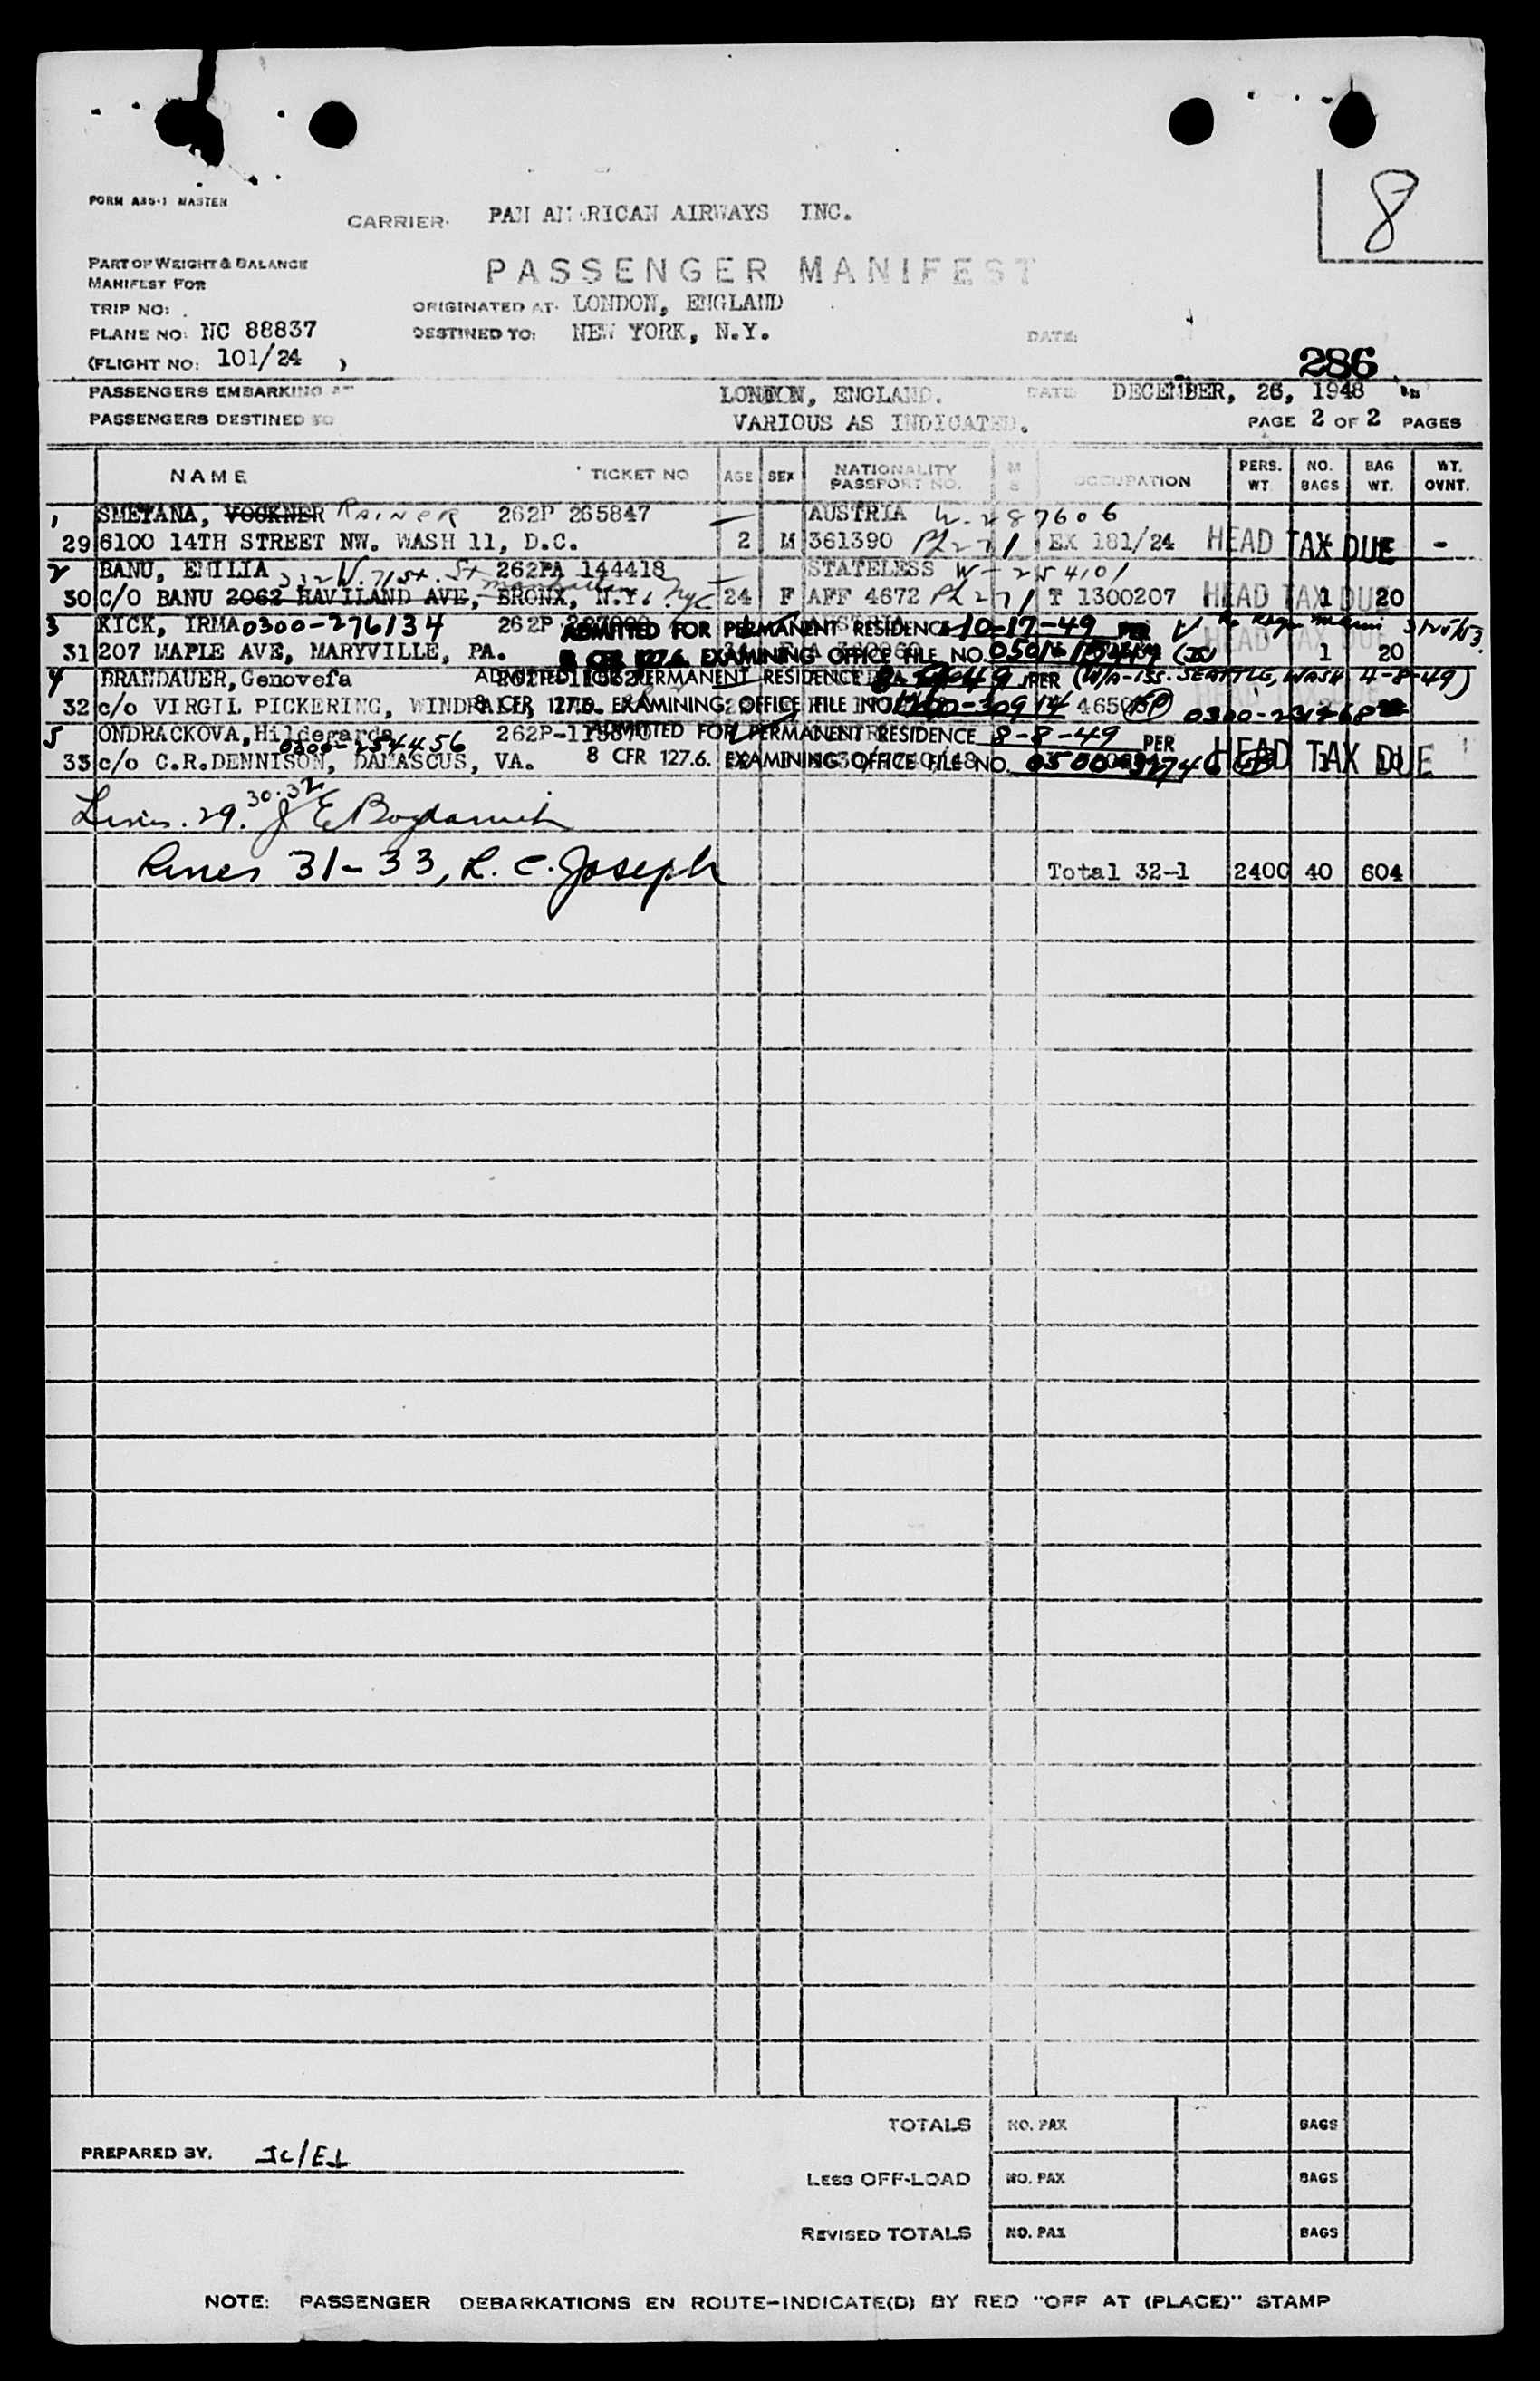 8
FORM A35-1 MASTER
CARRIER: PAN AMERICAN AIRWAYS INC.
PART OF WEIGHT & BALANCE
MANIFEST FOR
PASSENGER MANIFEST
TRIP NO:
ORIGINATED AT: LONDON, ENGLAND
PLANE NO: NC 88837
DESTINED TO: NEW YORK, N.Y.
DATE:
(FLIGHT NO: 101/24 )
286
PASSENGERS EMBARKING AT LONDON, ENGLAND. DATE DECEMBER, 26, 1948
PASSENGERS DESTINED TO VARIOUS AS INDICATED. PAGE 2 OF 2 PAGES
NAME TICKET NO AGE SEX NATIONALITY PASSPORT NO. M S OCCUPATION PERS. WT NO. BAGS BAG WT. WT. OVNT.
1 SMETANA, VOCKNER RAINER 262P 265847 AUSTRIA W. 287606
29 6100 14TH STREET NW. WASH 11, D.C. 2 M 361390 EX 181/24 HEAD TAX DUE -
2 BANU, EMILIA 332 W. 71st. St 262PA 144418 STATELESS W-254101
30 C/O BANU 2062 HAVILAND AVE, BRONX, N.Y. NYC 24 F AFF 4672 T 1300207 HEAD TAX DUE 1 20
3 KICK, IRMA 0300-276134 262P ADMITTED FOR PERMANENT RESIDENCE 10-17-49 PER
31 207 MAPLE AVE, MARYVILLE, PA. 8 CFR 127.6. EXAMINING OFFICE FILE NO. HEAD TAX DUE 1 20
4 BRANDAUER, Genovefa ADMITTED FOR PERMANENT RESIDENCE PER (W/A-ISS. SEATTLE, WASH 4-8-49)
32 c/o VIRGIL PICKERING, 8 CFR 127.6. EXAMINING OFFICE FILE NO.
5 ONDRACKOVA, Hildegarda 262P- ADMITTED FOR PERMANENT RESIDENCE 8-8-49 PER
0300-254456
33 c/o C.R.DENNISON, DAMASCUS, VA. 8 CFR 127.6. EXAMINING OFFICE FILE NO. HEAD TAX DUE
Lines. 29. 30.32 J E
Lines 31-33, L. C. Joseph Total 32-1 2400 40 604
TOTALS NO. PAX BAGS
PREPARED BY.
LESS OFF-LOAD NO. PAX BAGS
REVISED TOTALS NO. PAX BAGS
NOTE: PASSENGER DEBARKATIONS EN ROUTE-INDICATE(D) BY RED "OFF AT (PLACE)" STAMP